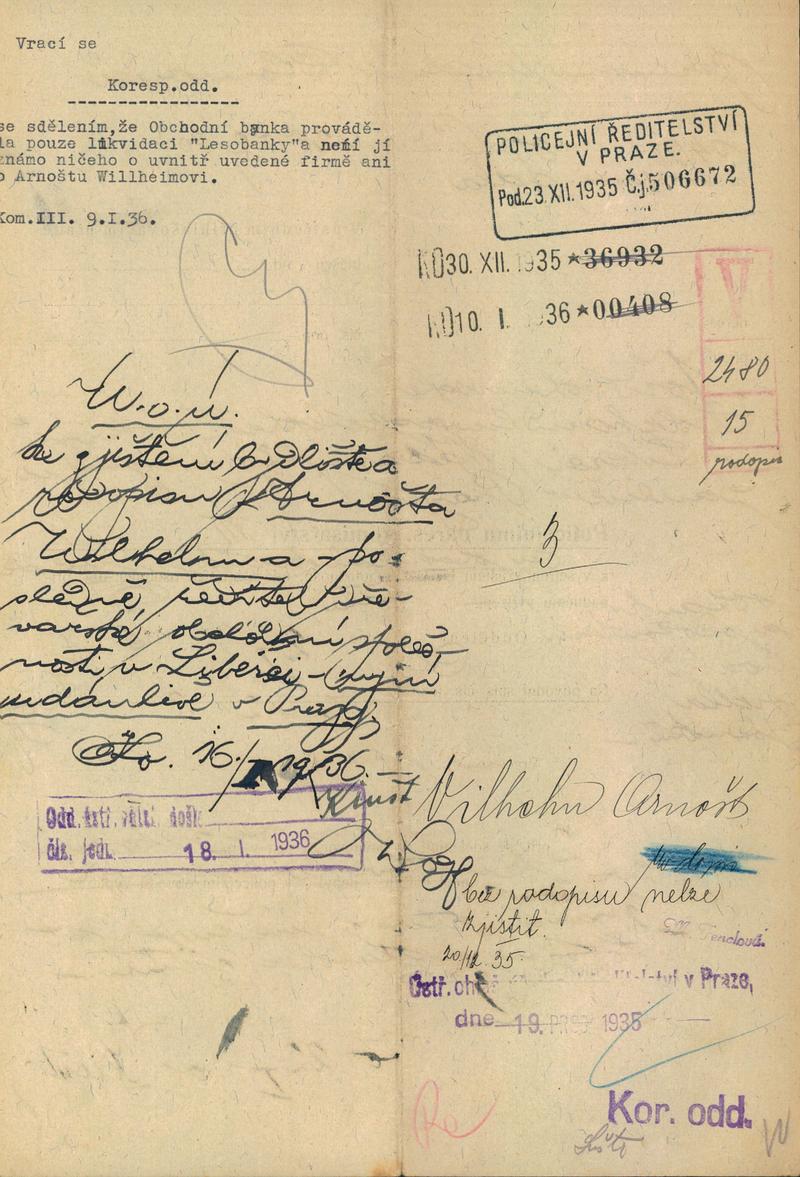 Vrací se
Koresp.odd.
se sdělením,že Obchodní banka provádě-
la pouze likvidaci "Lesobanky"a není jí
známo ničeho o uvnitř uvedené firmě ani
o Arnoštu Willheimovi.
Kom.III. 9.I.36.
POLICEJNÍ ŘEDITELSTVÍ
V PRAZE.
Pod.23.XII.1935 Č.j.506672
30. XII. 1935 *36932
10. I. 36 *00408
V
2480
15
rodopis
3
W.o.ú.
ke zjištění bydliště a
rodopisu Arnošta
Wilhelma a po-
sledně ředitel
varské obchodní společ-
nosti v Liberci - nyní
udánlivě v Praze
16./I 1936.
Odd.
čís. jedn. 18. I. 1936
Vilhelm Arnošt
bez rodopisu nelze
zjistit.
20/12. 35.
Ústř. v Praze,
dne 19. PROS. 1935
Kor. odd.